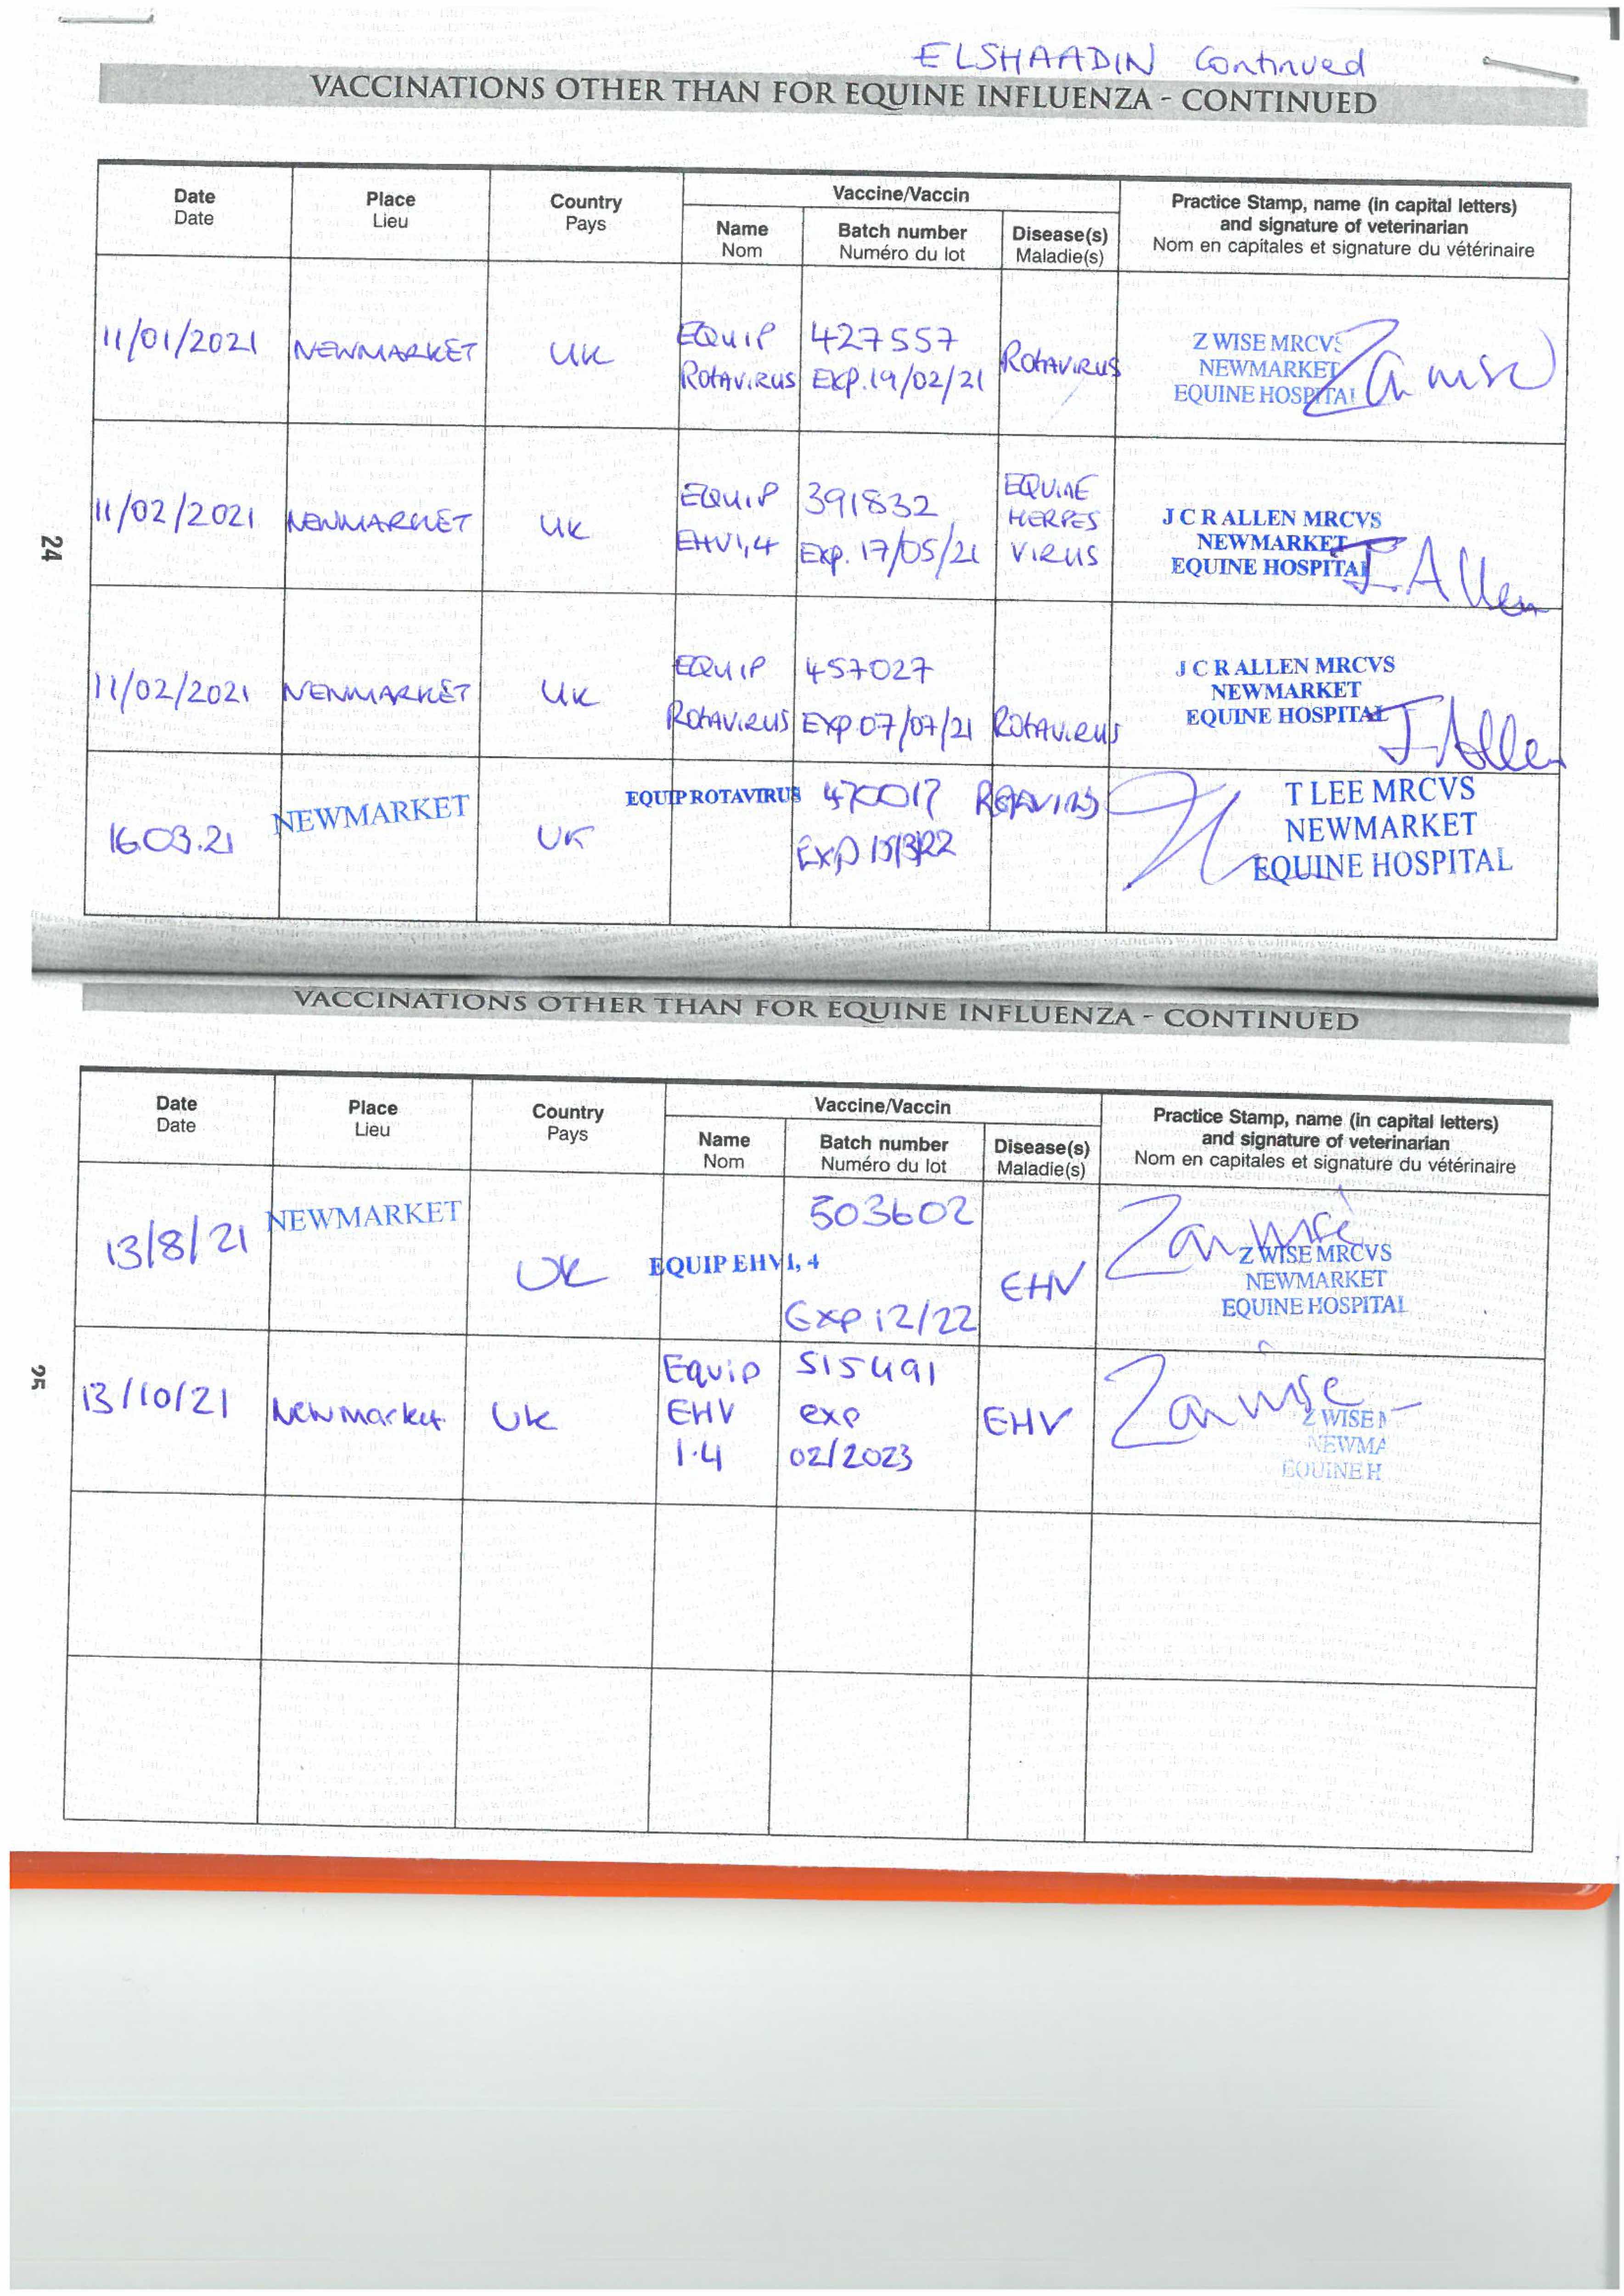 ELSHAADIN Continued
VACCINATIONS OTHER THAN FOR EQUINE INFLUENZA - CONTINUED
Date
Date
Place
Lieu
Country
Pays
Vaccine/Vaccin
Name
Nom
Batch number
Numéro du lot
Disease(s)
Maladie(s)
Practice Stamp, name (in capital letters)
and signature of veterinarian
Nom en capitales et signature du vétérinaire
11/01/2021
NEWMARKET
UK
EQUIP
ROTAVIRUS
427557
EXP.19/02/21
ROTAVIRUS
Z WISE MRCVS
NEWMARKET
EQUINE HOSPITAL
11/02/2021
NEWMARKET
UK
EQUIP
EHV1,4
391832
EXP. 17/05/21
EQUINE
HERPES
VIRUS
J C R ALLEN MRCVS
NEWMARKET
EQUINE HOSPITAL
J. Allen
24
11/02/2021
NEWMARKET
UK
EQUIP
ROTAVIRUS
457027
EXP.07/07/21
ROTAVIRUS
J C R ALLEN MRCVS
NEWMARKET
EQUINE HOSPITAL
J. Allen
16.03.21
NEWMARKET
UK
EQUIP ROTAVIRUS
470017
EXP
T LEE MRCVS
NEWMARKET
EQUINE HOSPITAL
VACCINATIONS OTHER THAN FOR EQUINE INFLUENZA - CONTINUED
Date
Date
Place
Lieu
Country
Pays
Vaccine/Vaccin
Name
Nom
Batch number
Numéro du lot
Disease(s)
Maladie(s)
Practice Stamp, name (in capital letters)
and signature of veterinarian
Nom en capitales et signature du vétérinaire
13/8/21
NEWMARKET
UK
EQUIP EHV 1, 4
503602
Exp 12/22
EHV
Z WISE MRCVS
NEWMARKET
EQUINE HOSPITAL
25
13/10/21
Newmarket
UK
Equip
EHV
1.4
515491
exp
02/2023
EHV
Z WISE M
NEWMA
EQUINE H